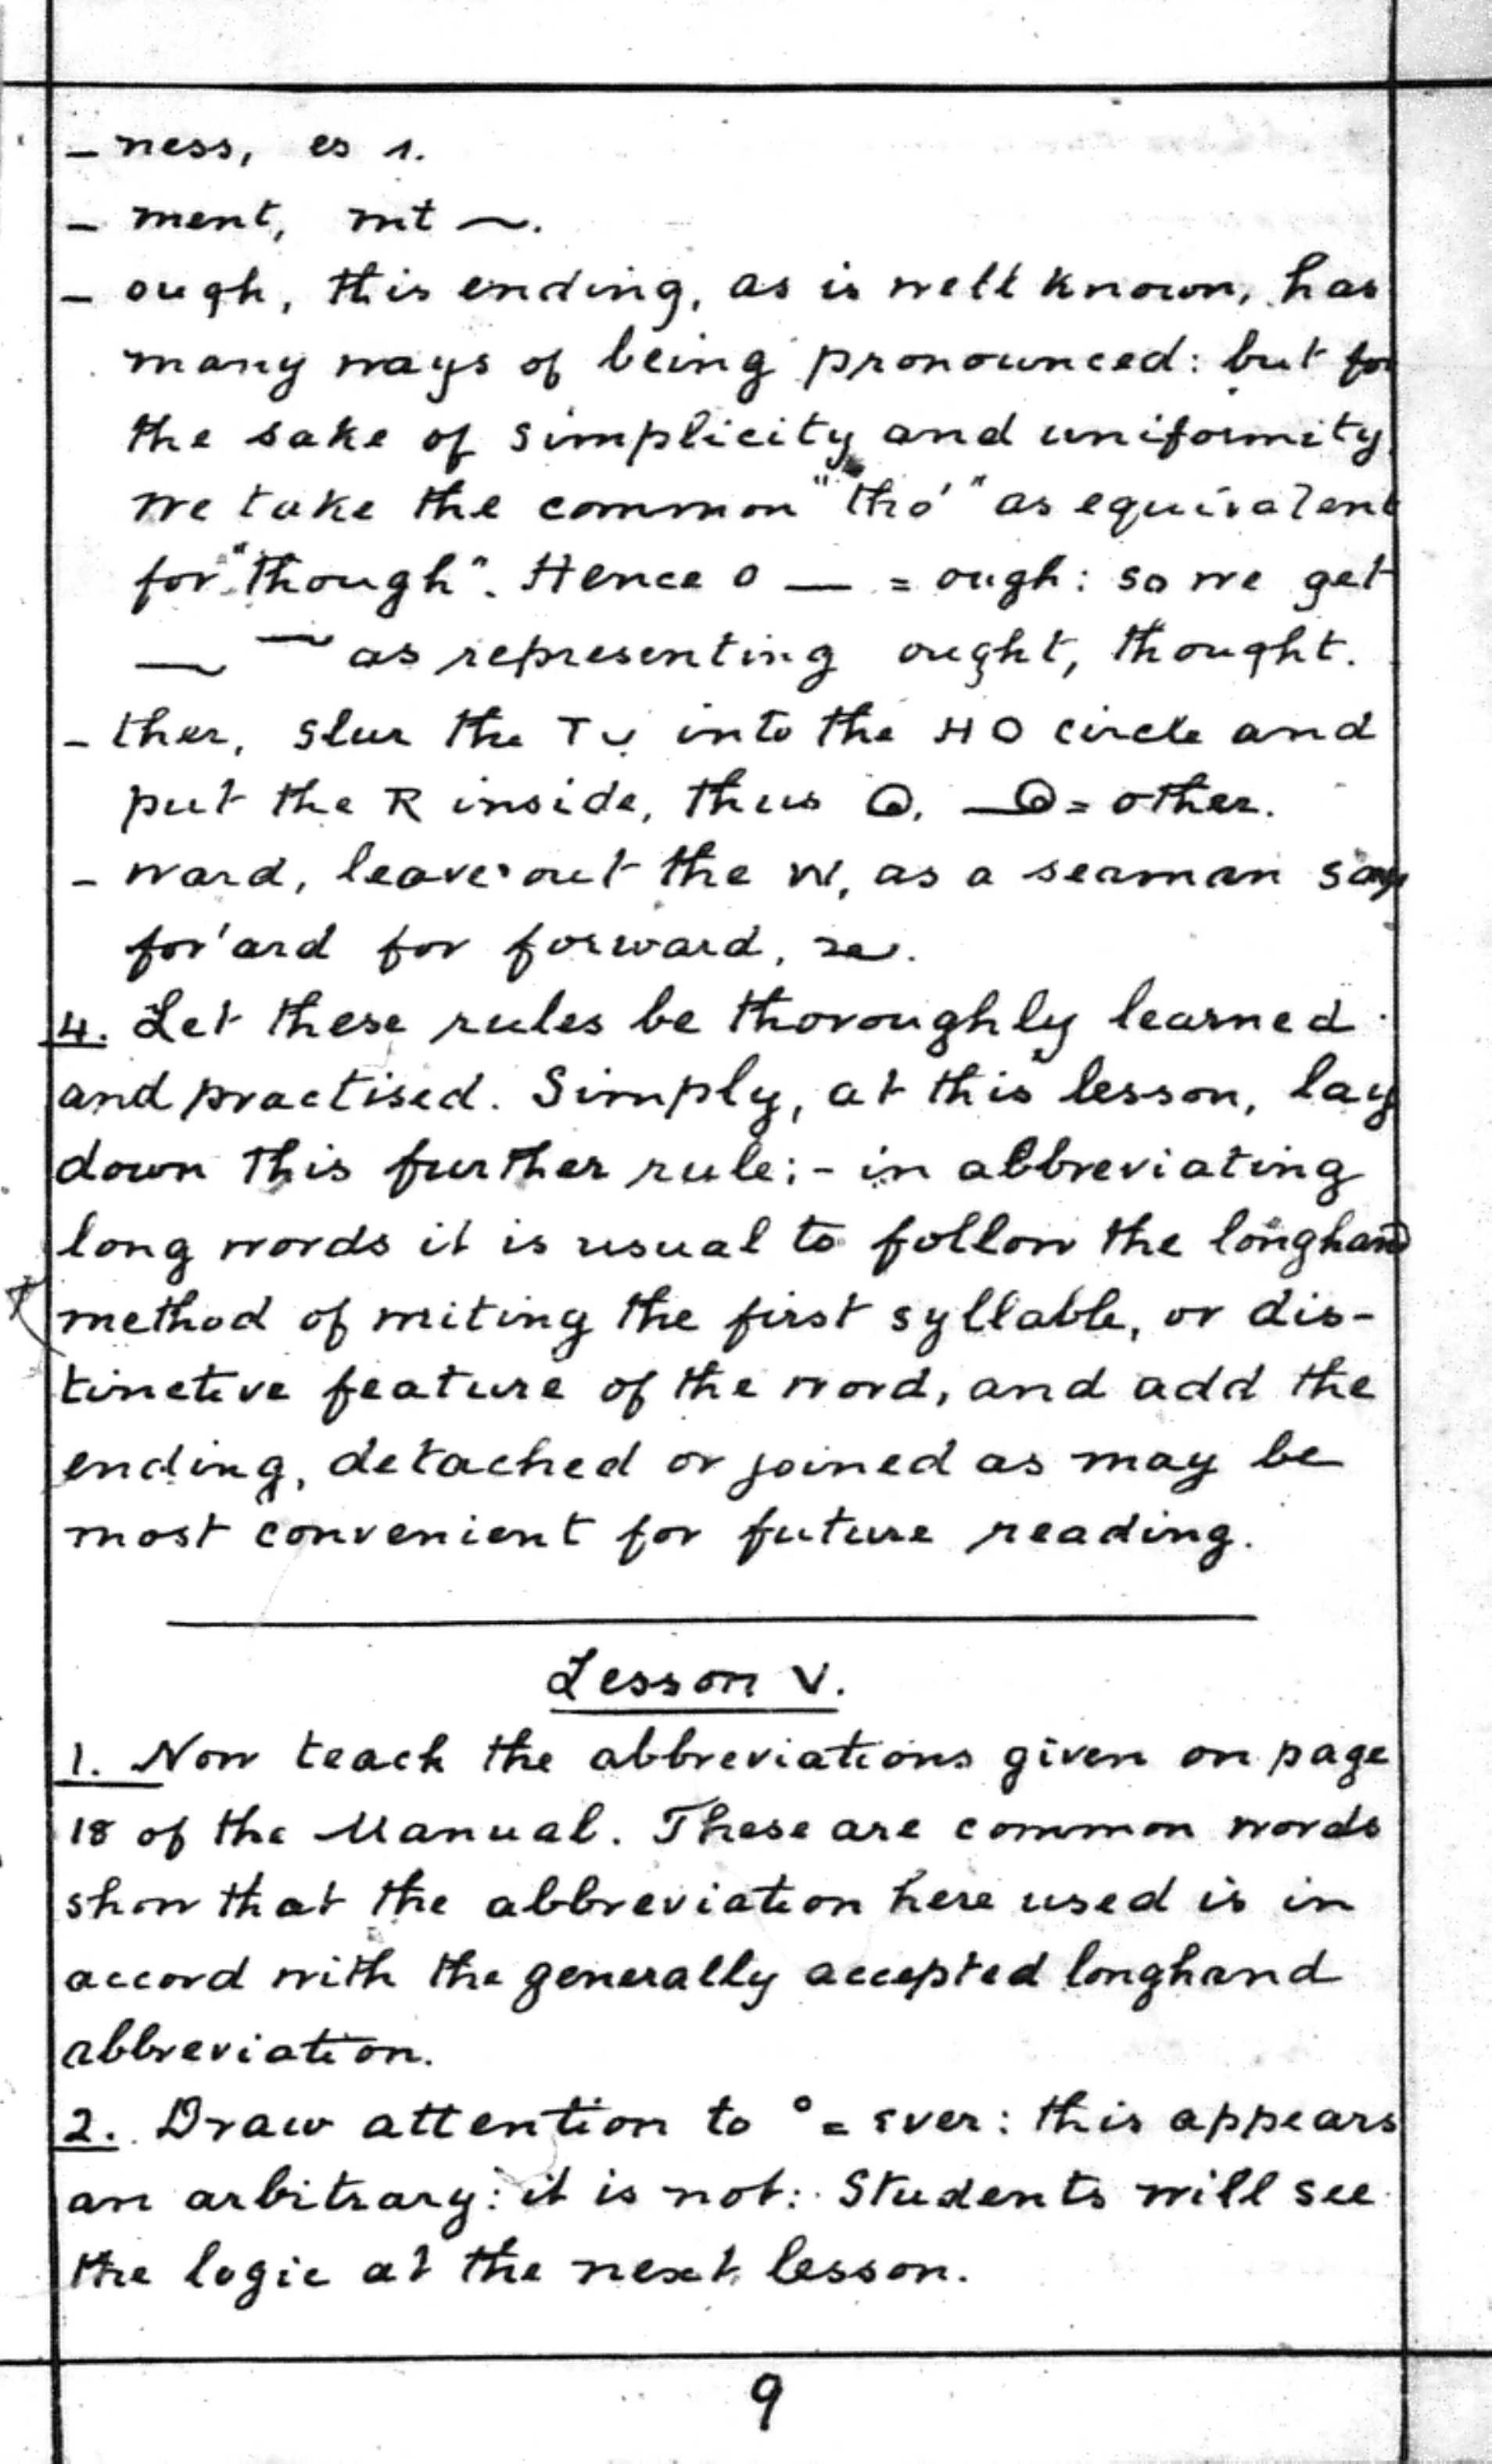 – ness, es
– ment, mt
– ough, this ending, as is well known, has
many ways of being pronounced: but for
the sake of simplicity and uniformity
we take the common "tho'" as equivalent
for "though". Hence O — = ough: so we get
as representing ought, thought.
– ther, slur the T into the HO circle and
put the R inside, thus = other.
– ward, leave out the W, as a seaman says
for'ard for forward,
4. Let these rules be thoroughly learned
and practised. Simply, at this lesson, lay
down this further rule:- in abbreviating
long words it is usual to follow the longhand
method of writing the first syllable, or dis-
tinctive feature of the word, and add the
ending, detached or joined as may be
most convenient for future reading.
Lesson V.
1. Now teach the abbreviations given on page
18 of the Manual. These are common words
show that the abbreviation here used is in
accord with the generally accepted longhand
abbreviation.
2. Draw attention to ° = ever: this appears
an arbitrary: it is not: Students will see
the logic at the next lesson.
9